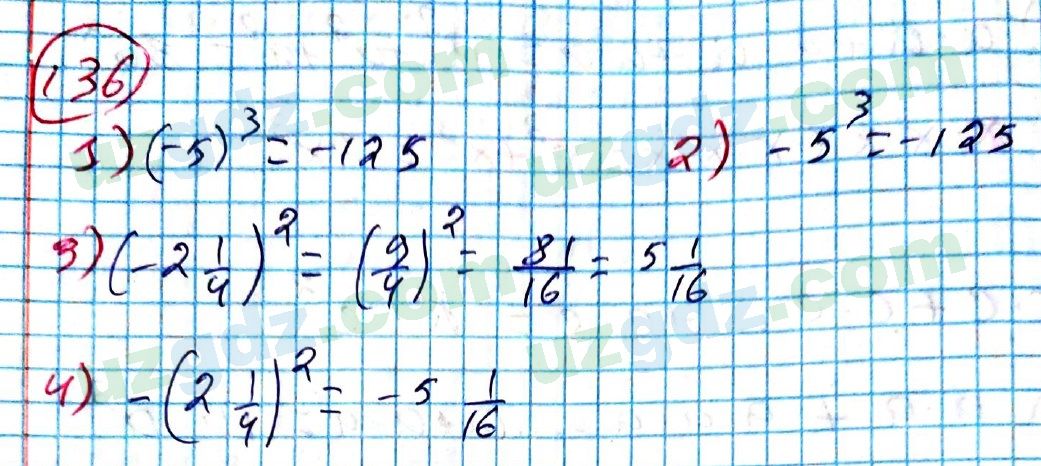 136
1) (-5)³ = -125 2) -5³ = -125
3) (-2 1/4)² = (9/4)² = 81/16 = 5 1/16
4) -(2 1/4)² = -5 1/16
uzgdz.com
uzgdz.com
uzgdz.com
uzgdz.com